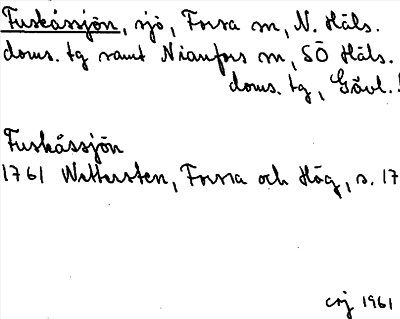 Fuskåssjön, sjö, Forsa sn, N. Häls.
doms. tg samt Nianfors sn, SÖ Häls.
doms. tg, Gävl. l
Fuskåssjön
1761 Wettersten, Forssa och Hög, s. 17
crj 1961